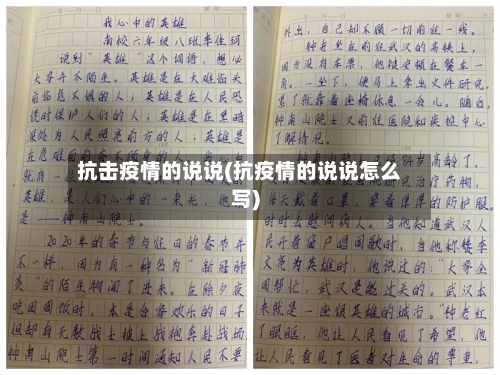 我心中的英雄
南校六年级八班李佳珂
说到"英雄"这个词语，想必
大家并不陌生。英雄是在大难临头
前临危不惧的人；英雄是在人民恐
慌时保护人们的人；英雄是在黑暗
深处为人民照亮前方的人；英雄是
在危难
就自
英雄，是人们心中的一束光，他
是——钟南山院士。
2020年的春节与往日的春节并
不一样，因为有一种名为"新冠肺
炎"的陌生物闯了进来。在除夕夜
吃团圆饭时，本是合家欢乐的日子
但却有无数战士披上战袍奔赴战场
钟南山院士第一时间通知人民不要
外出，自己却不顾一切前往一线。
钟老坐在前往武汉的高铁上，
因为没有车票，他被安顿在餐车一
角。一坐下，便马上拿出文件研究，
累了就靠着座椅休息一会儿。随后，
钟南山院士又前往医院和疾控中心
了解情况。
84岁高龄了，
研究治疗药物，
每天戴着口罩，穿着厚厚的防护服，
时时去慰问病人。当他知道武汉人
民开着窗户唱国歌时，当他称赞李
文亮为英雄时，他说过的："大家全
国帮忙，武汉是能过关的。武汉本
来就是一座很英雄的城市。"钟老红
了眼眶，他让人民看见了希望，他
让人民看见了医者对生命的尊重，
抗击疫情的说说(抗疫情的说说怎么
写)